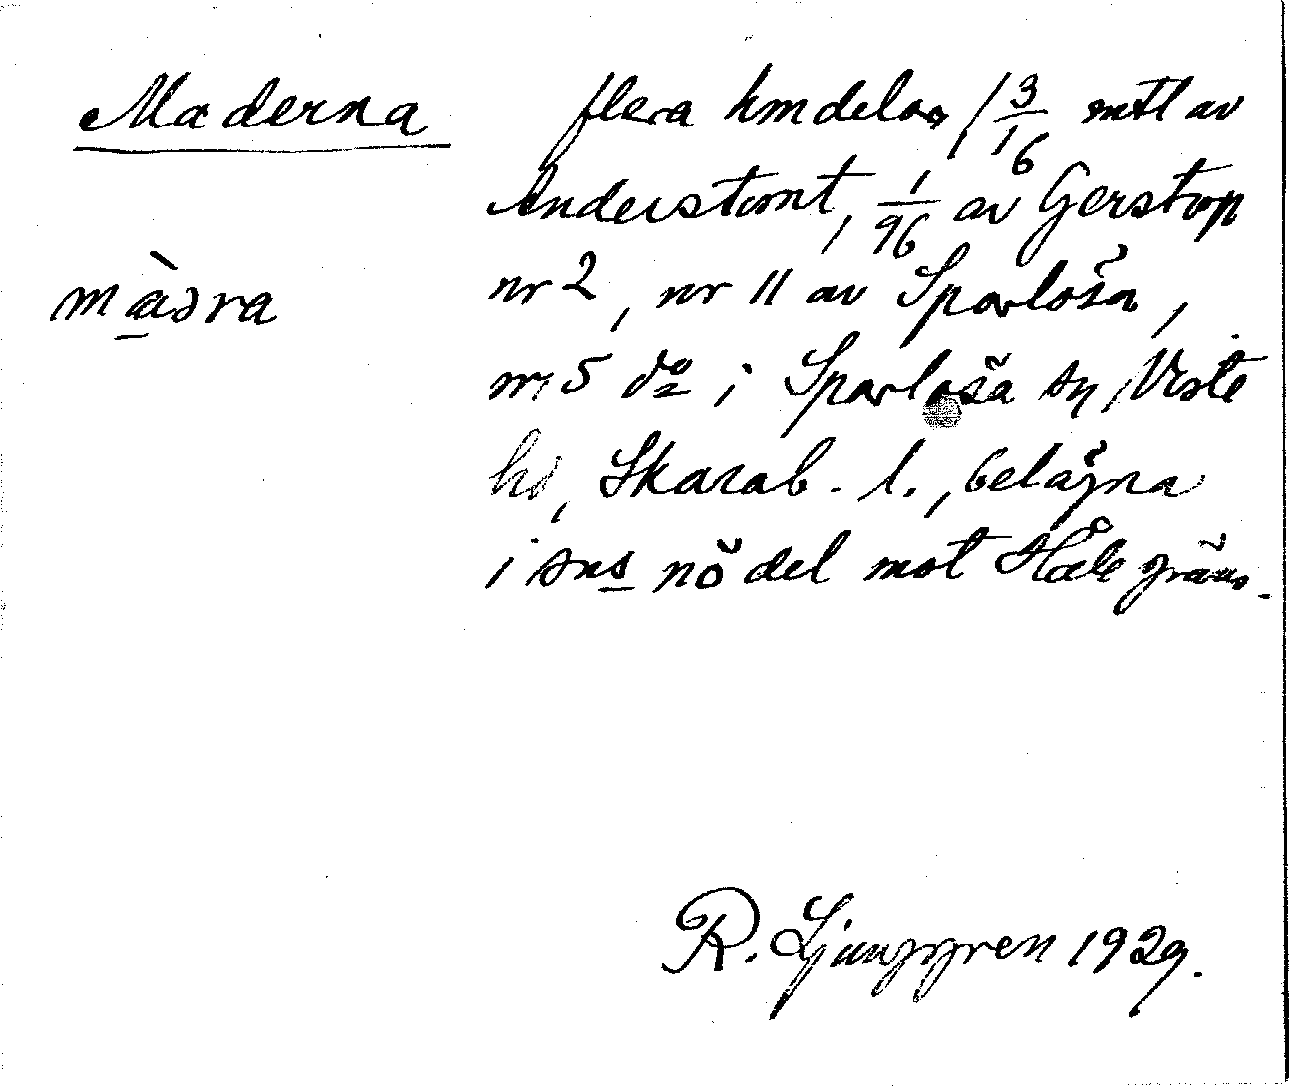 Maderna
màdra
flera hmdelar, 1 3/16 mtl av
Anderstomt, 1/96 av Gerstorp
nr 2, nr 11 av Sparlösa,
nr 5 do i Sparlösa sn, Viste
hd, Skarab. l., belägna
i sns nö del mot Håle gräns.
R. Ljunggren 1929.